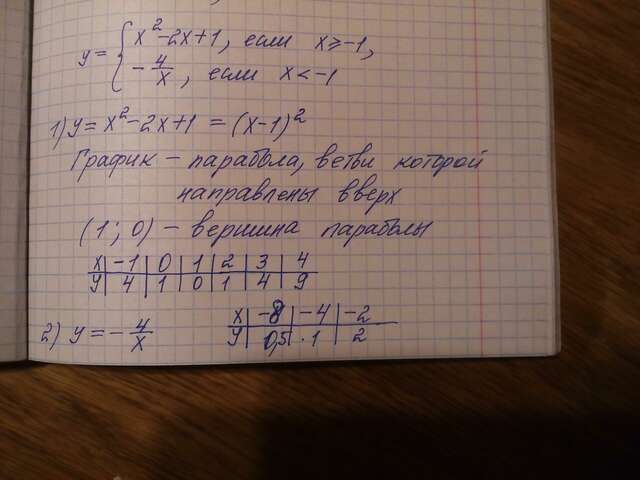 y = { x² - 2x + 1, если x ≥ -1,
- 4/x, если x < -1
1) y = x² - 2x + 1 = (x-1)²
График - парабола, ветви которой
направлены вверх
(1; 0) - вершина параболы
x | -1 | 0 | 1 | 2 | 3 | 4
y | 4 | 1 | 0 | 1 | 4 | 9
2) y = - 4/x
x | -8 | -4 | -2
y | 0,5 | 1 | 2